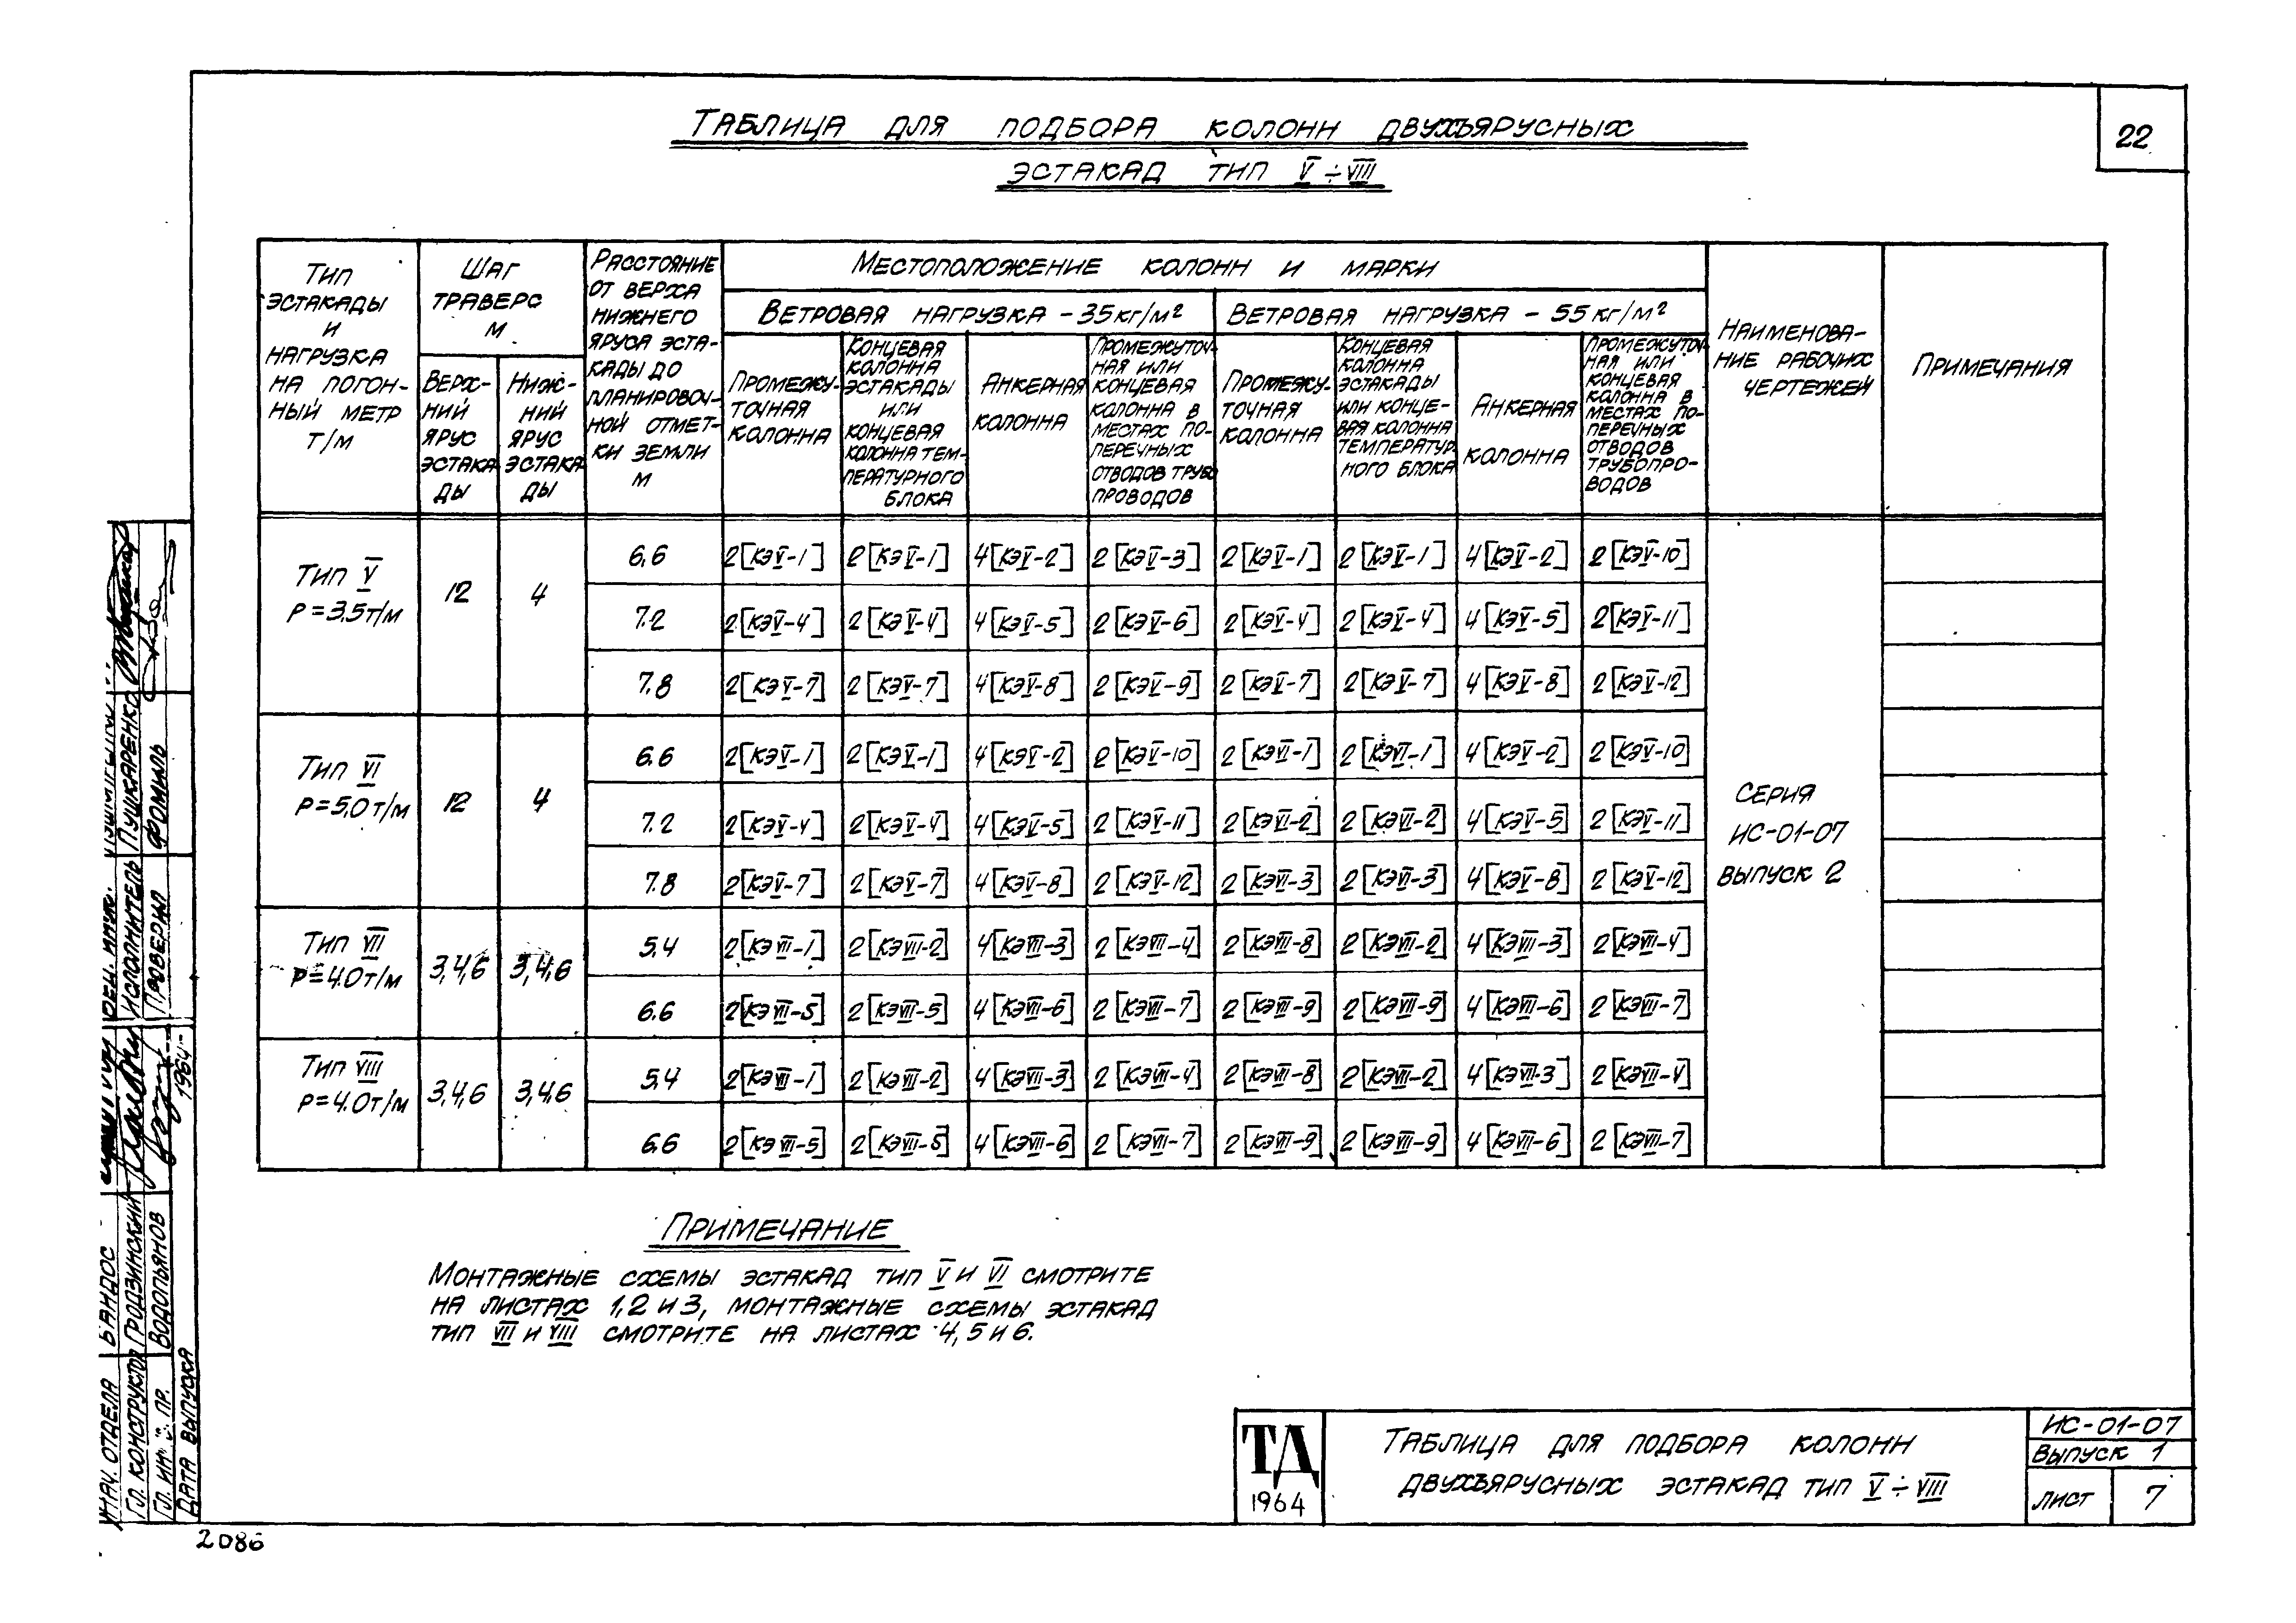 22
ТАБЛИЦА ДЛЯ ПОДБОРА КОЛОНН ДВУХЪЯРУСНЫХ
ЭСТАКАД ТИП V÷VIII
ТИП
ЭСТАКАДЫ
И
НАГРУЗКА
НА ПОГОН-
НЫЙ МЕТР
Т/М
ШАГ
ТРАВЕРС
М
ВЕРХ-
НИЙ
ЯРУС
ЭСТАКА
ДЫ
НИЖ-
НИЙ
ЯРУС
ЭСТАКА
ДЫ
РАССТОЯНИЕ
ОТ ВЕРХА
НИЖНЕГО
ЯРУСА ЭСТА-
КАДЫ ДО
ПЛАНИРОВОЧ-
НОЙ ОТМЕТ-
КИ ЗЕМЛИ
М
МЕСТОПОЛОЖЕНИЕ КОЛОНН И МАРКИ
ВЕТРОВАЯ НАГРУЗКА – 35 КГ/М²
ВЕТРОВАЯ НАГРУЗКА – 55 КГ/М²
ПРОМЕЖУ-
ТОЧНАЯ
КОЛОННА
КОНЦЕВАЯ
КОЛОННА
ЭСТАКАДЫ
ИЛИ
КОНЦЕВАЯ
КОЛОННА ТЕМ-
ПЕРАТУРНОГО
БЛОКА
АНКЕРНАЯ
КОЛОННА
ПРОМЕЖУТОЧ-
НАЯ ИЛИ
КОНЦЕВАЯ
КОЛОННА В
МЕСТАХ ПО-
ПЕРЕЧНЫХ
ОТВОДОВ ТРУБО
ПРОВОДОВ
ПРОМЕЖУ-
ТОЧНАЯ
КОЛОННА
КОНЦЕВАЯ
КОЛОННА
ЭСТАКАДЫ
ИЛИ КОНЦЕ-
ВАЯ КОЛОННА
ТЕМПЕРАТУР
НОГО БЛОКА
АНКЕРНАЯ
КОЛОННА
ПРОМЕЖУТОЧ
НАЯ ИЛИ
КОНЦЕВАЯ
КОЛОННА В
МЕСТАХ ПО-
ПЕРЕЧНЫХ
ОТВОДОВ
ТРУБОПРО-
ВОДОВ
НАИМЕНОВА-
НИЕ РАБОЧИХ
ЧЕРТЕЖЕЙ
ПРИМЕЧАНИЯ
ТИП V
Р=3.5т/м
12 4
6,6 2[КЭV-1] 2[КЭV-1] 4[КЭV-2] 2[КЭV-3] 2[КЭV-1] 2[КЭV-1] 4[КЭV-2] 2[КЭV-10]
7.2 2[КЭV-4] 2[КЭV-4] 4[КЭV-5] 2[КЭV-6] 2[КЭV-4] 2[КЭV-4] 4[КЭV-5] 2[КЭV-11]
7.8 2[КЭV-7] 2[КЭV-7] 4[КЭV-8] 2[КЭV-9] 2[КЭV-7] 2[КЭV-7] 4[КЭV-8] 2[КЭV-12]
ТИП VI
Р=5,0т/м
12 4
6.6 2[КЭV-1] 2[КЭV-1] 4[КЭV-2] 2[КЭV-10] 2[КЭVI-1] 2[КЭVI-1] 4[КЭV-2] 2[КЭV-10]
7.2 2[КЭV-4] 2[КЭV-4] 4[КЭV-5] 2[КЭV-11] 2[КЭVI-2] 2[КЭVI-2] 4[КЭV-5] 2[КЭV-11]
7.8 2[КЭV-7] 2[КЭV-7] 4[КЭV-8] 2[КЭV-12] 2[КЭVI-3] 2[КЭVI-3] 4[КЭV-8] 2[КЭV-12]
ТИП VII
Р=4.0т/м
3,4,6 3,4,6
5,4 2[КЭVII-1] 2[КЭVII-2] 4[КЭVII-3] 2[КЭVII-4] 2[КЭVII-8] 2[КЭVII-2] 4[КЭVII-3] 2[КЭVII-4]
6.6 2[КЭVII-5] 2[КЭVII-5] 4[КЭVII-6] 2[КЭVII-7] 2[КЭVII-9] 2[КЭVII-9] 4[КЭVII-6] 2[КЭVII-7]
ТИП VIII
Р=4.0т/м
3,4,6 3,4,6
5,4 2[КЭVII-1] 2[КЭVII-2] 4[КЭVII-3] 2[КЭVII-4] 2[КЭVII-8] 2[КЭVII-2] 4[КЭVII-3] 2[КЭVII-4]
6.6 2[КЭVII-5] 2[КЭVII-5] 4[КЭVII-6] 2[КЭVII-7] 2[КЭVII-9] 2[КЭVII-9] 4[КЭVII-6] 2[КЭVII-7]
СЕРИЯ
ИС-01-07
ВЫПУСК 2
ПРИМЕЧАНИЕ
МОНТАЖНЫЕ СХЕМЫ ЭСТАКАД ТИП V И VI СМОТРИТЕ
НА ЛИСТАХ 1,2 И 3, МОНТАЖНЫЕ СХЕМЫ ЭСТАКАД
ТИП VII И VIII СМОТРИТЕ НА ЛИСТАХ 4, 5 И 6.
ТД
1964
ТАБЛИЦА ДЛЯ ПОДБОРА КОЛОНН
ДВУХЪЯРУСНЫХ ЭСТАКАД ТИП V÷VIII
ИС-01-07
ВЫПУСК 1
ЛИСТ 7
НАЧ. ОТДЕЛА БАНДОС
ГЛ. КОНСТРУКТОР ГРОДЗИНСКИЙ
ГЛ. ИНЖ. ПР. ВОДОПЬЯНОВ
ДАТА ВЫПУСКА 1964
ИСПОЛНИТЕЛЬ ПУШКАРЕНКО
ПРОВЕРИЛ ФОМИЛЬ
2086